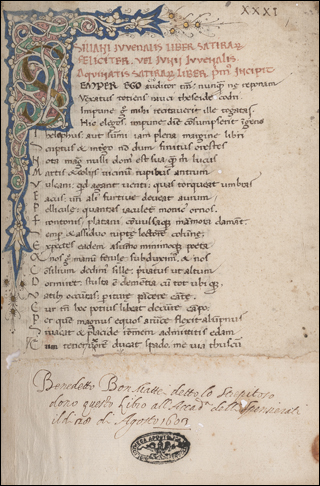 XXXI
IVVENALIS LIBER SATIRAR
FELICITER. VEL IVNII IVVENALIS
AQVINATIS SATIRARUM LIBER PM9 INCIPIT
EMPER EGO auditor tm: nunq ne reponam
Vexatus totiens rauci theseide codri
Impune g mihi recitaverit ille togatas:
Hic elegos: impune diē consumpserit igens
Thelephus aut summi iam plena margine libri
Scriptus & in tergo. nō dum finitus orestes
Nota mag nulli domus est sua q m lucus
Martis & eoliis vicinum rupibus antrum
Vulcani: qd agant venti: quas torqueat umbras
Aeacus: un alius furtive devecat aurum
Pelliculę: quantas iaculet monicus ornos.
Frontonis platani convulsaq marmora clamant
Semp & assiduo ruptę lectore colunę:
Expectes eadem a summo minimoq poeta
Et nos g manū ferule subduxim: & nos
Consilium dedim sille: privatus ut altum
Dormiret. stulta ē clementia cū tot ubiq
Vatib occurras: periturę parcere cartę.
Cur tn hoc potius libeat decurrere campo:
Per que magnus equos auruncę flexit alumnus
Si vacat & placide rationem admittitis edam
Cum tener uxorē ducat spado. mevia thuscum
Benedetto Bon Matte detto lo
dono questo Libro all' Accad. de
il di di Agosto 1603